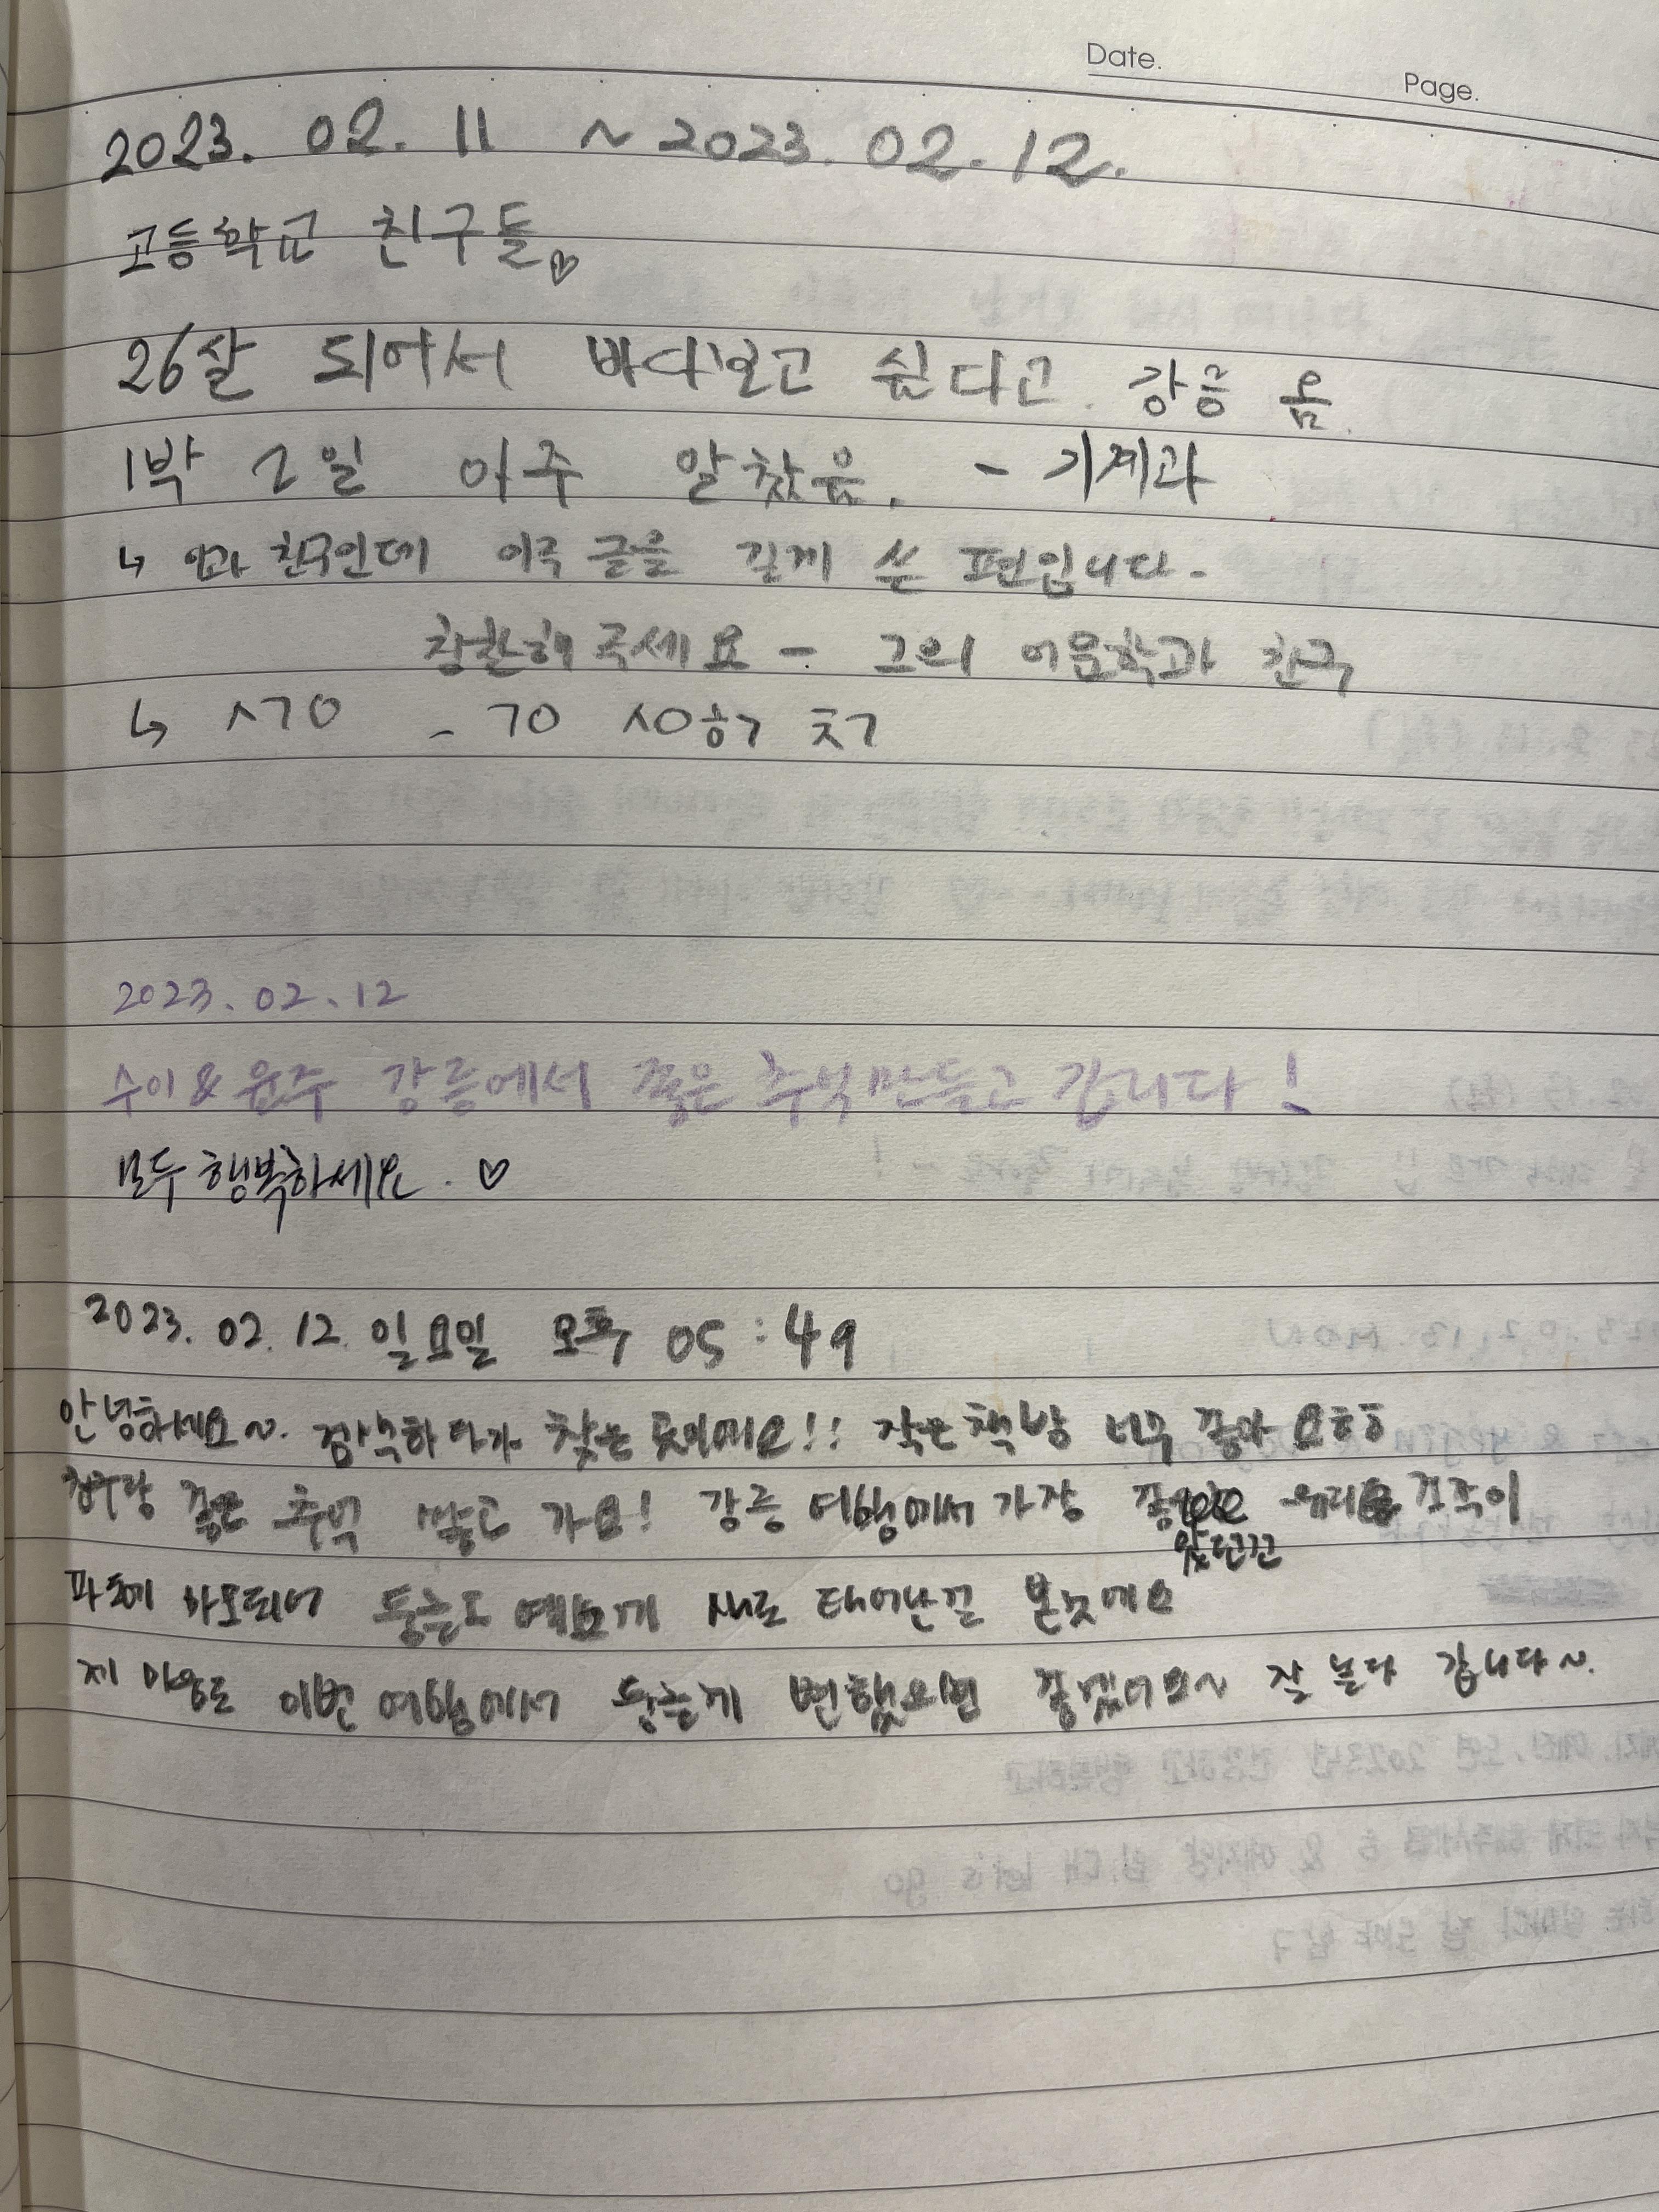 Date.
Page.
2023. 02. 11 ~ 2023. 02. 12.
고등학교 친구들♡
26살 되어서 바다보고 싶다고. 강릉 옴.
1박 2일 아주 알찼음. - 기계과
↳ 친구인데 글을 길게 쓴 편입니다-
칭찬해주세요 - 그의 어문학과 친구
↳ ㅅㄱㅇ - ㄱㅇ ㅅㅇㅎㄱ ㅊㄱ
2023. 02. 12
수이 & 윤주 강릉에서 좋은 추억만들고 갑니다!
모두 행복하세요. ♡
2023. 02. 12. 일요일 오후 05:49
안녕하세요~. 검색하다가 찾은 곳이에요!! 작은 책방 너무 좋아요ㅎㅎ
좋은 추억 쌓고 가요! 강릉 여행에서 가장 좋았던건 유리 조각이
파도에 마모되어 둥글고 예쁘게 새로 태어난걸 본것에요
제 마음도 이번 여행에서 둥글게 변했으면 좋겠어요~ 잘 놀다 갑니다~.